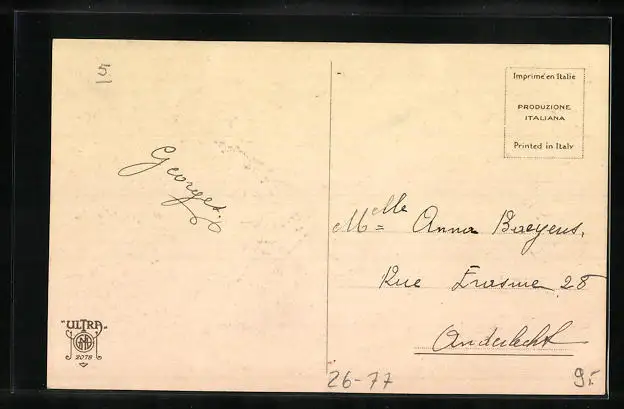 5
Imprimé en Italie
PRODUZIONE
ITALIANA
Printed in Italy
Georges.
Melle Anna Baeyens,
Rue Erasme 28
Anderlecht
"ULTRA"
2078
26-77
9.-